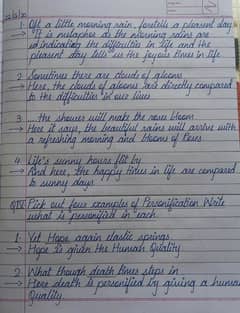 1 Oft a little morning rain, foretells a pleasant day
→ It is metaphor as the morning rains are
indicating the difficulties in life and the
pleasant day tells us the joyous times in life
2 Sometimes there are clouds of gloom
→ Here, the clouds of gloom are directly compared
to the difficulties in our lives
3 ... the shower will make the roses bloom
→ Here it says, the beautiful rains will arrive with
a refreshing morning and blooms of Roses
4 Life's sunny hours flit by
→ And here, the happy times in life are compared
to sunny days
Pick out four examples of Personification Write
what is personified in each
1 Yet Hope again elastic springs
→ Hope is given the Human Quality
2 What though death times steps in
→ Here death is personified by giving a human
Quality